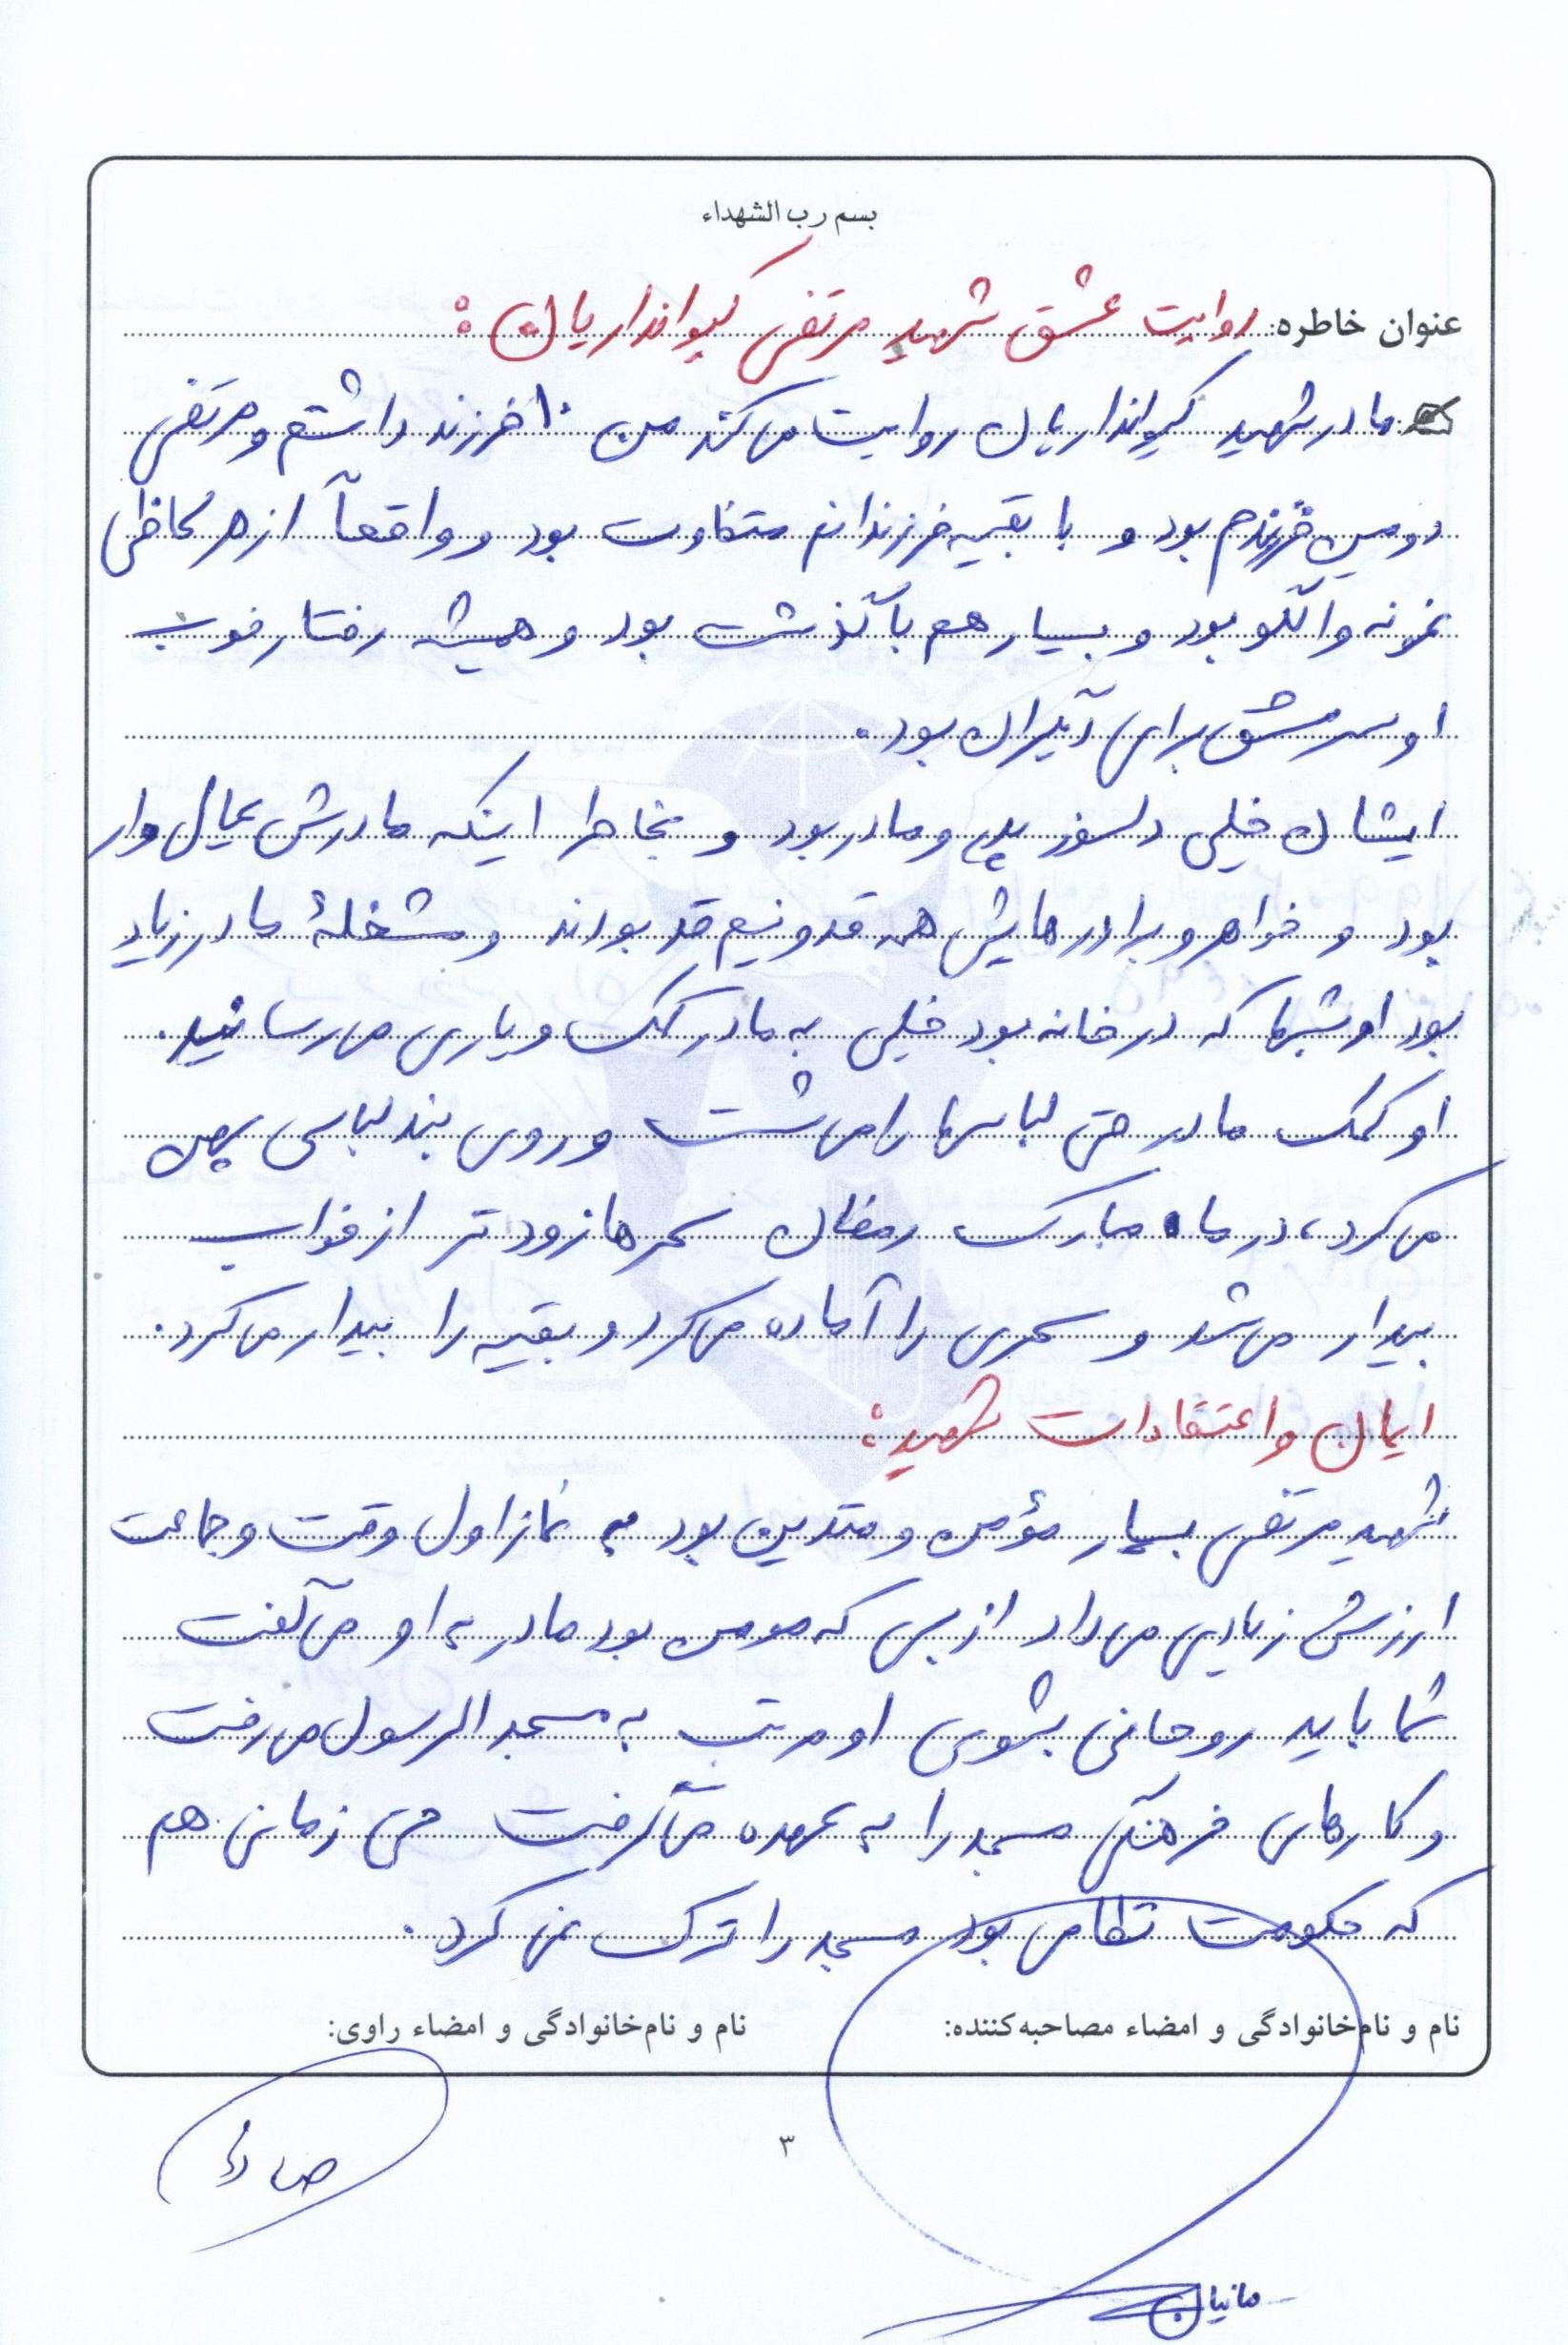 بسم رب الشهداء
عنوان خاطره: روایت عشق شهید مرتضی گیوانداریان:
مادر شهید گیوانداریان روایت می‌کند من ۱۰ فرزند داشتم و مرتضی
دومین فرزندم بود و با بقیه فرزندانم متفاوت بود و واقعاً از هر لحاظی
نمونه و الگو بود و بسیار هم با گذشت بود و همیشه رفتار خوب
او سرمشق برای دیگران بود.
ایشان خیلی دلسوز پدر و مادر بود و بخاطر اینکه مادرش عیال وار
بود و خواهر و برادرهایش همه قد و نیم قد بودند و مشغلهٔ مادر زیاد
بود او شبها که در خانه بود خیلی به مادر کمک و یاری می‌رسانید.
او کمک مادر حتی لباسها را می‌شست و روی بند لباسی پهن
می‌کرد، در ماه مبارک رمضان سحرها زودتر از خواب
بیدار می‌شد و سحری را آماده می‌کرد و بقیه را بیدار می‌کرد.
ایمان و اعتقادات شهید:
شهید مرتضی بسیار مؤمن و متدین بود به نماز اول وقت و جماعت
ارزش زیادی می‌داد از بس که مومن بود مادر به او می‌گفت
شما باید روحانی بشوی او مرتب به مسجد الرسول می‌رفت
و کارهای فرهنگی مسجد را به عهده می‌گرفت حتی زمانی هم
که حکومت نظامی بود مسجد را ترک نمی‌کرد.
نام و نام‌خانوادگی و امضاء مصاحبه‌کننده:
نام و نام‌خانوادگی و امضاء راوی:
۳
مانیان